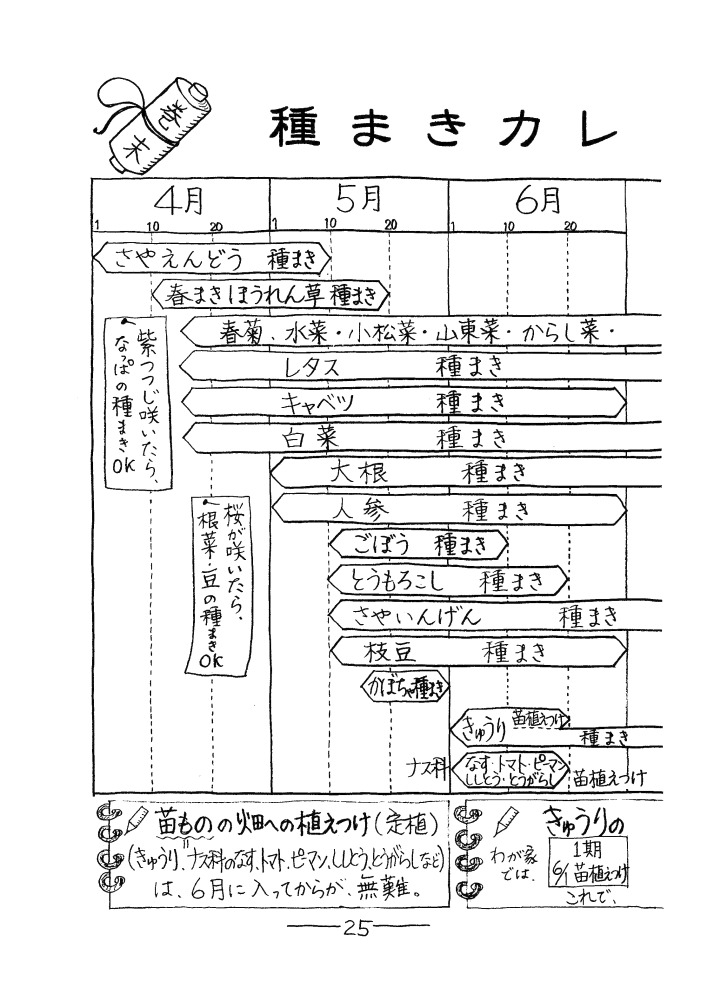 巻末
種まきカレ
4月 5月 6月
1 10 20 1 10 20 1 10 20
さやえんどう 種まき
春まきほうれん草 種まき
春菊、水菜・小松菜・山東菜・からし菜・
レタス 種まき
キャベツ 種まき
白菜 種まき
大根 種まき
人参 種まき
ごぼう 種まき
とうもろこし 種まき
さやいんげん 種まき
枝豆 種まき
かぼちゃ種まき
きゅうり 苗植えつけ
種まき
ナス科
なす・トマト・ピーマン
ししとう・とうがらし
苗植えつけ
紫つつじ咲いたら、
なっぱの種まきOK
桜が咲いたら、
根菜・豆の種まきOK
苗ものの畑への植えつけ(定植)
(きゅうり、ナス科のなす、トマト、ピーマン、ししとう、とうがらしなど)
は、6月に入ってからが、無難。
きゅうりの
わが家
では、
1期
6/1 苗植えつけ
これで、
25